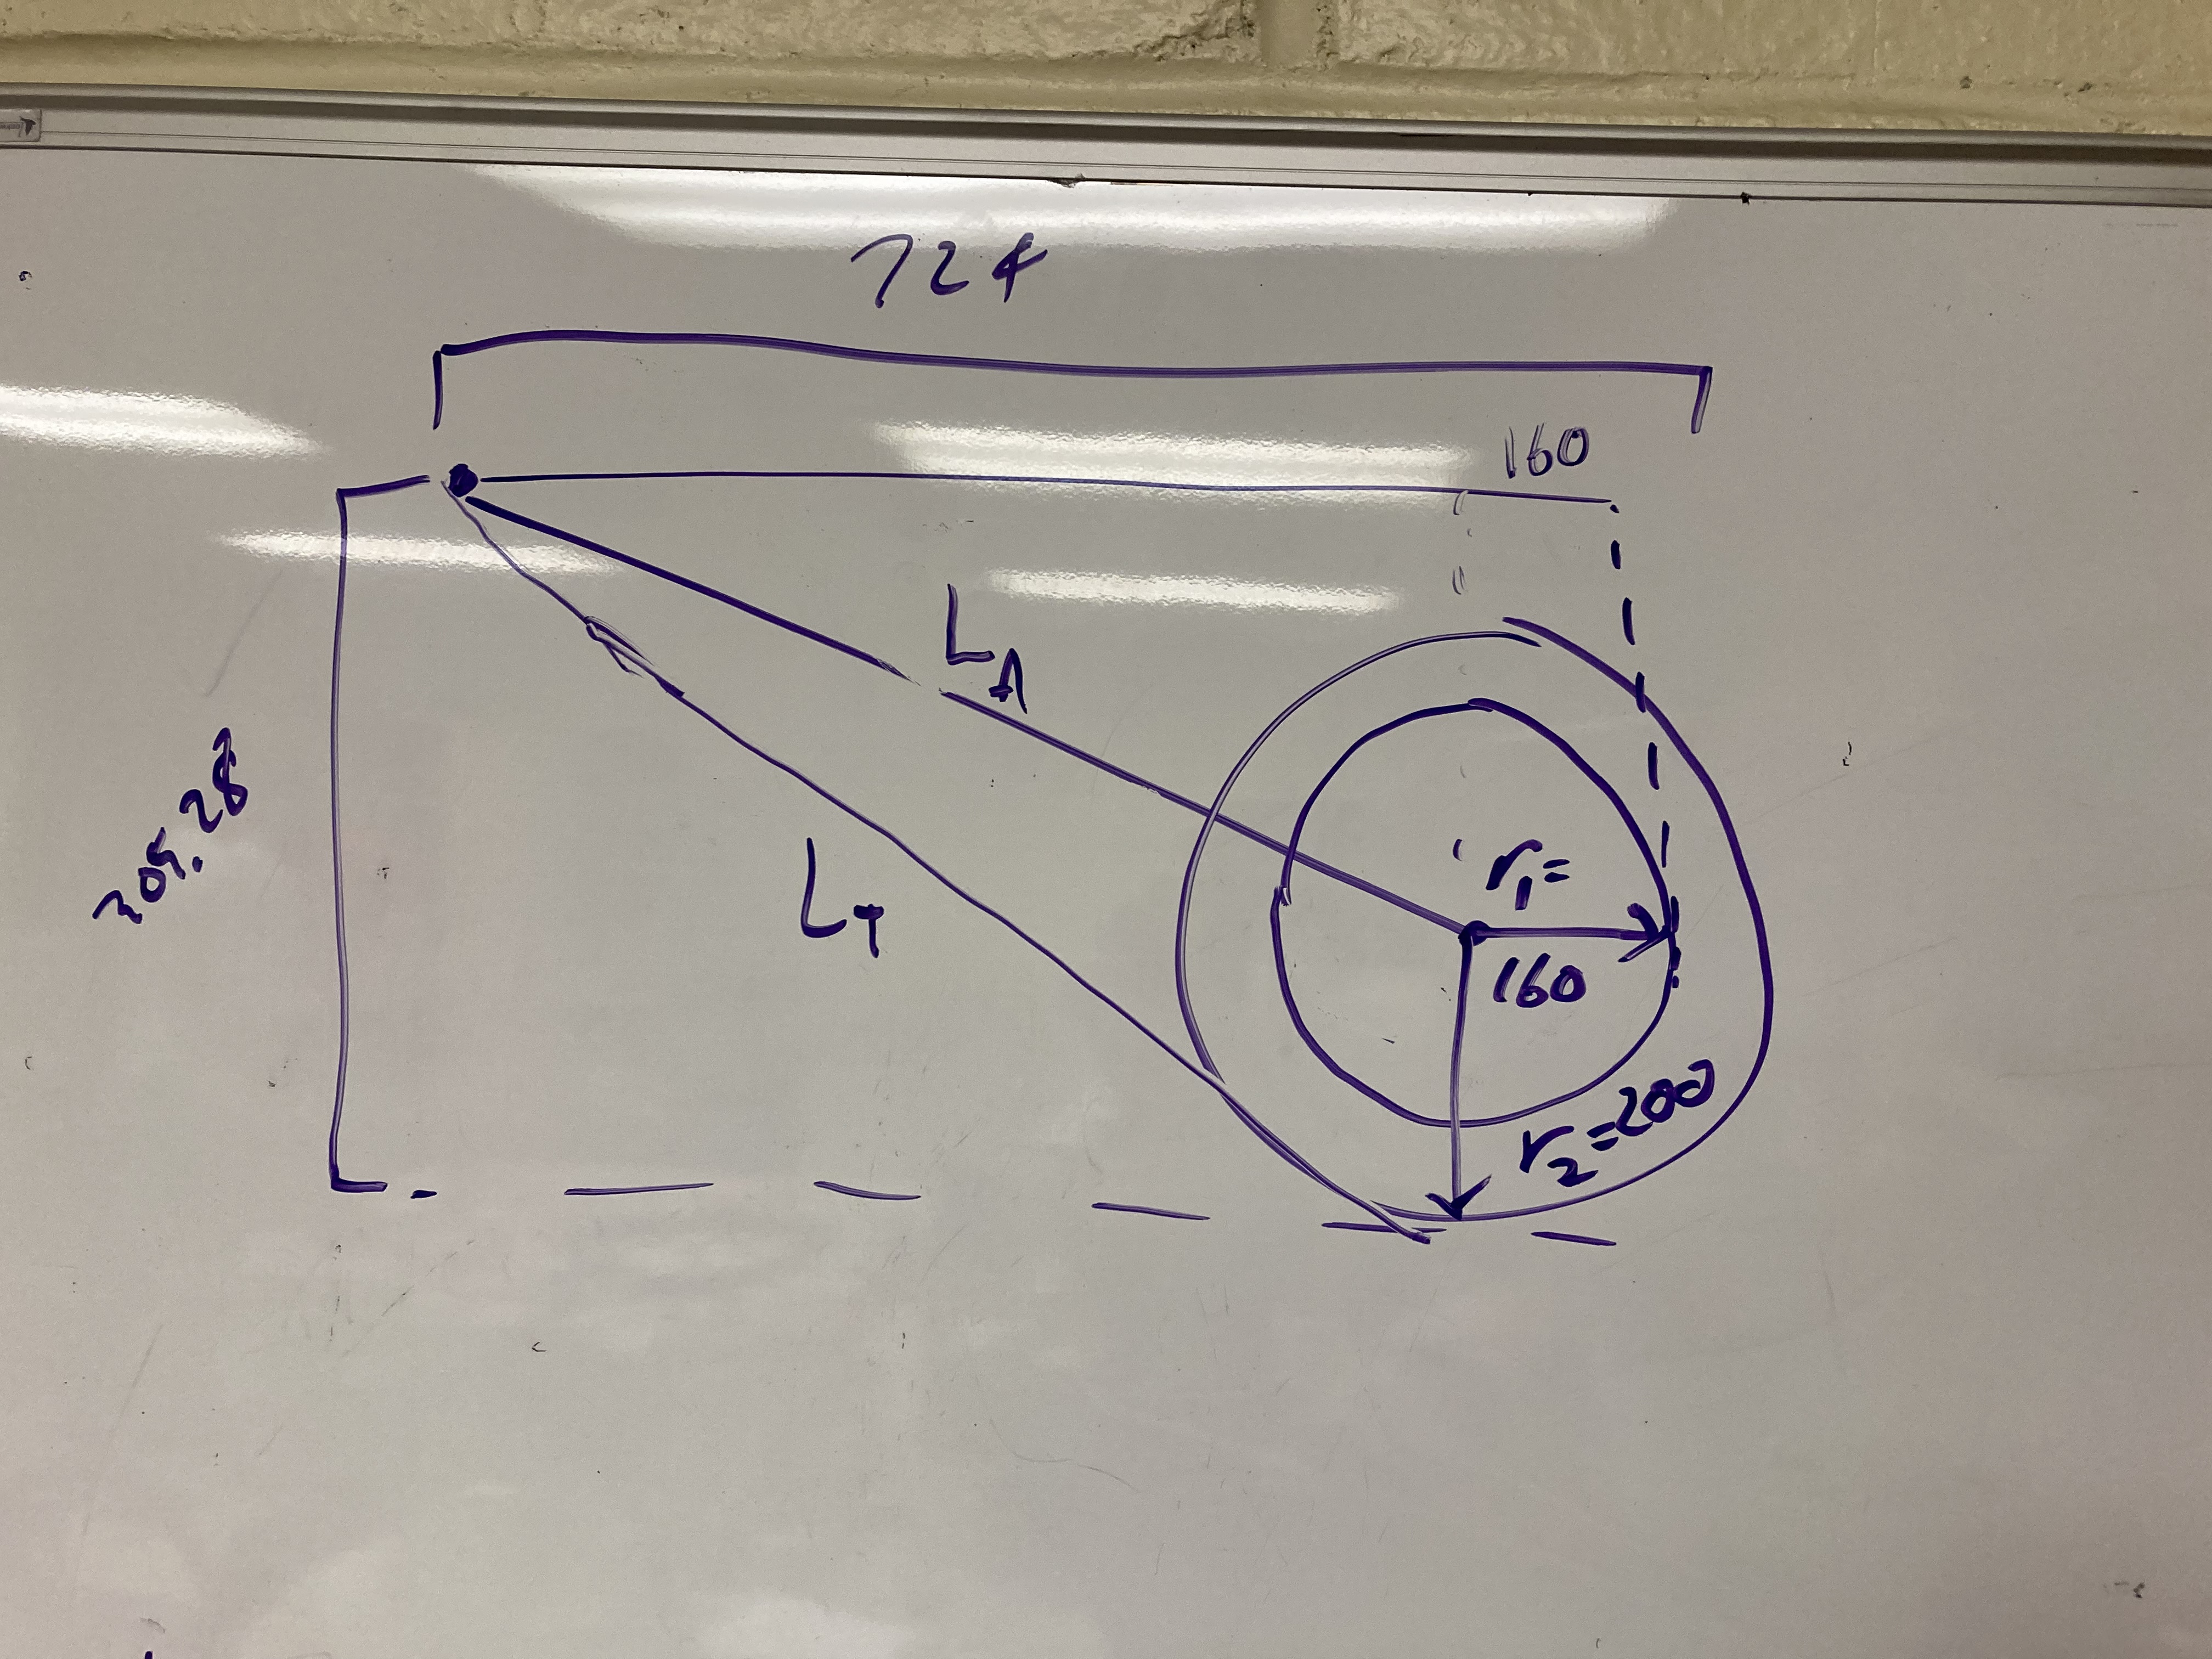 724
160
L_A
305.28
r₁=
L_T
160
r₂=200